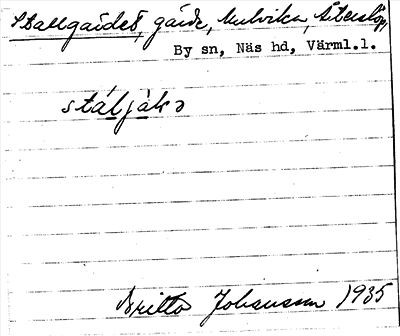 Stallgärdet, gärde, Mulvika, Åberslög,
By sn, Näs hd, Värml.l.
stál̯jàkə
Britta Johansson 1935